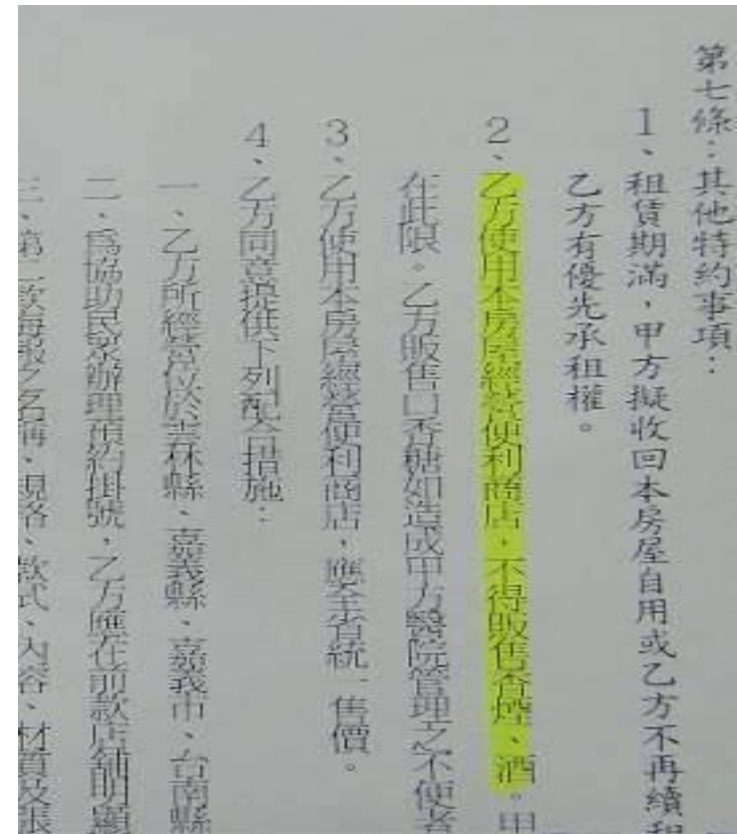 第七條：其他特約事項：
1、租賃期滿，甲方擬收回本房屋自用或乙方不再續租
乙方有優先承租權。
2、乙方使用本房屋經營便利商店，不得販售香煙、酒。甲
在此限。乙方販售口香糖如造成甲方醫院管理之不便者
3、乙方使用本房屋經營便利商店，應全省統一售價。
4、乙方同意提供下列配合措施：
一、乙方所經營位於雲林縣、嘉義縣、嘉義市、台南縣
二、為協助民眾辦理預約掛號，乙方應在前款店舖明顯
三、第二款海報之名稱、規格、款式、內容、材質及張